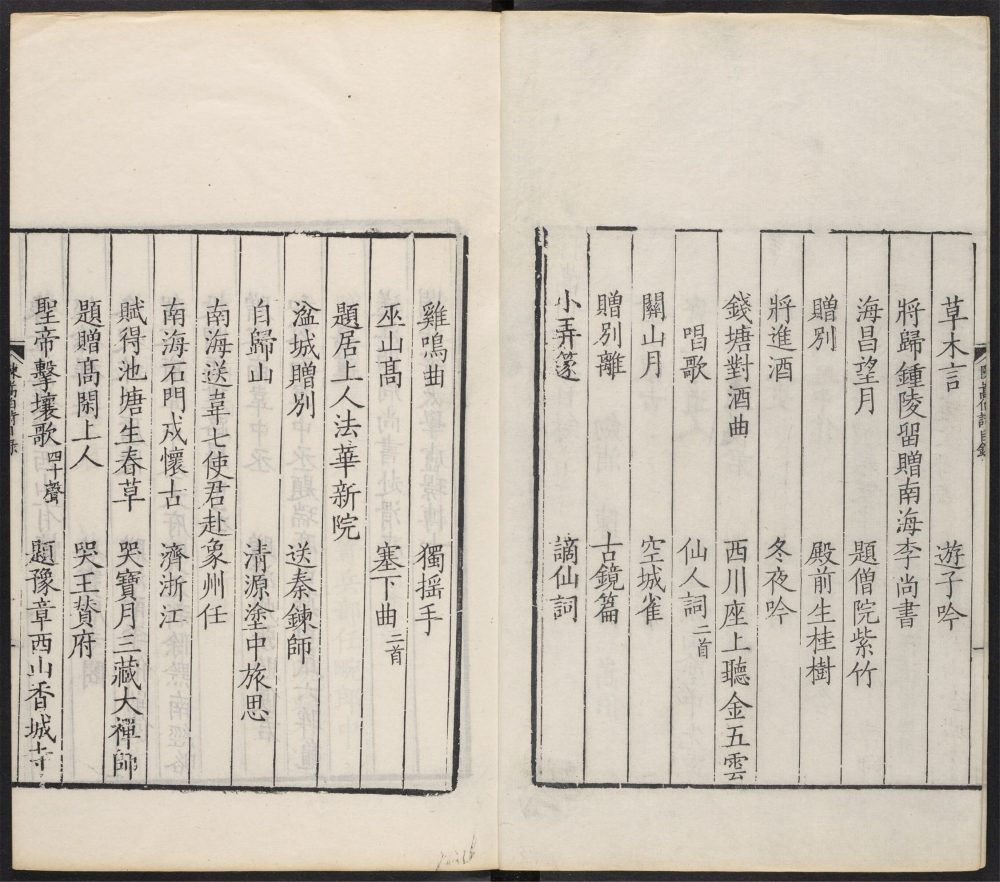 草木言　遊子吟
將歸鍾陵留贈南海李尚書
海昌望月　題僧院紫竹
贈別　殿前生桂樹
將進酒　冬夜吟
錢塘對酒曲　西川座上聽金五雲
唱歌　仙人詞二首
關山月　空城雀
贈別離　古鏡篇
小弄篆　謫仙詞
雞鳴曲　獨摇手
巫山髙　塞下曲二首
題居上人法華新院
湓城贈別　送秦鍊師
自歸山　清源塗中旅思
南海送韋七使君赴象州任
南海石門戍懷古　濟浙江
賦得池塘生春草　哭寶月三藏大禪師
題贈髙閑上人　哭王賛府
聖帝擊壤歌四十聲　題豫章西山香城寺